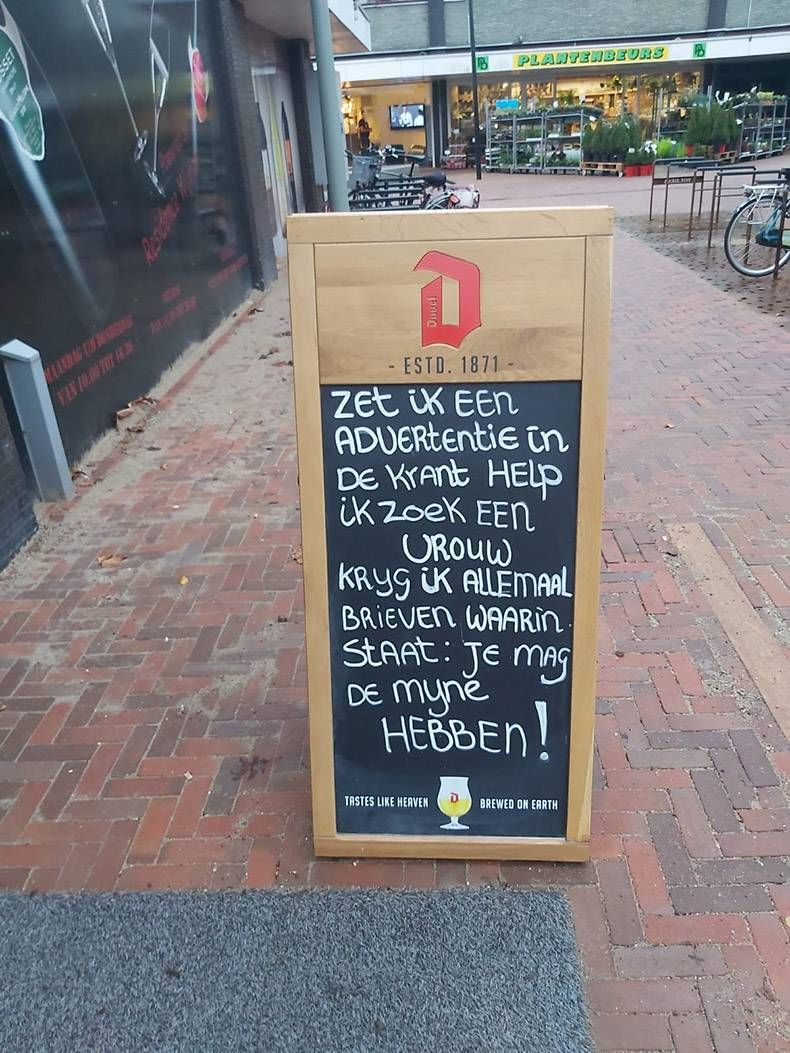 PLANTENBEURS
Duvel
- ESTD. 1871 -
ZET IK EEN
ADVERTENTIE in
DE KRANT HELP
iK ZOEK EEN
VROUW
KRYG IK ALLEMAAL
BRIEVEN WAARIN
STAAT: JE MAG
DE MYNE
HEBBEN!
TASTES LIKE HEAVEN BREWED ON EARTH
MAANDAG T/M DONDERDAG
VAN 10.00 TOT 18.30